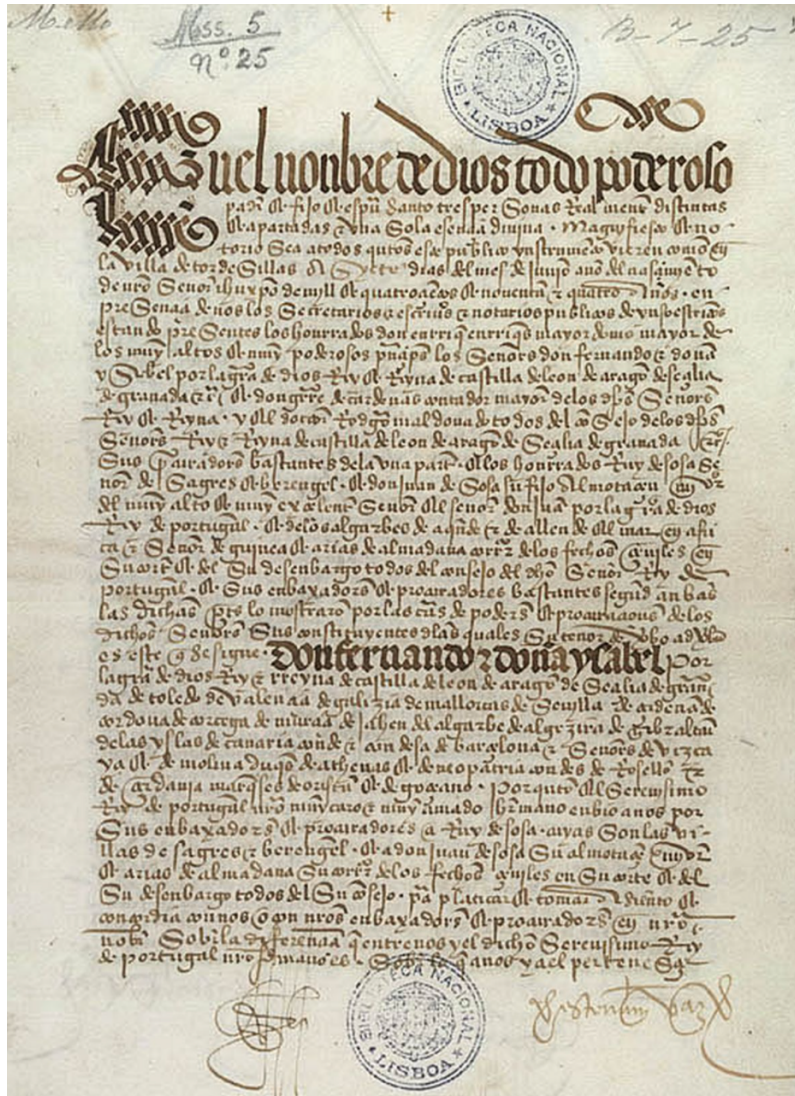 Mss. 5
nº 25
B-7-25
BIBLIOTECA NACIONAL
LISBOA
En el nonbre de dios todo poderoso
padre & fijo & espu santo tres personas Real mente distintas
& apartadas & vna Sola esençia diuina . Magnifiesto & no
torio Sea a todos quantos este publico ynstrumento vieren como en
la villa de tordesillas A Syete dias del mes de junio año del nasçimiento
de nro Señor ihuxpo de mill & quatroçientos & nouenta & quatro Años . en
preSençia de nos los Secretarios & escriuanos & notarios publicos de yuso escritos
estando preSentes los honrrados don enrrique enrriques mayordomo mayor de
los muy altos & muy poderosos prinçipes los Señores don fernando & doña
ySabel por la graçia de dios Rey & Reyna de castilla de leon de aragon de seçilia
de granada &c & don gutierre de cardenas contador mayor de los dichos Señores
Rey & Reyna . y el doctor Rodrigo maldonado todos del conSejo de los dichos
Señores Rey & Reyna de castilla de leon de aragon de Seçilia de granada &c
Sus procuradores bastantes de la vna parte . & los honrrados Ruy de sosa Se
ñor de Sagres & berengel . & don juan de Sosa su fijo Almotaçen mayor
del muy alto & muy exçelente Señor el señor don juan por la graçia de dios
Rey de portugal . & de los algarbes de aquende & de allende el mar en afri
ca & Señor de guinea & arias de almadana corregidor de los fechos çeuiles en
Su corte & del Su desenbargo todos del consejo del dicho Señor Rey de
portugal . & Sus enbaxadores & procuradores bastantes segund anbas
las dichas partes lo mostraron por las cartas de poderes & procuraçiones de los
dichos Señores Sus constituyentes de las quales Su tenor de
es este que se sigue . Don fernando & doña ysabel Por
la graçia de dios Rey & rreyna de castilla de leon de aragon de Seçilia de grana
da de toledo de valençia de galizia de mallorcas de Seuilla de çerdeña de
cordoua de corçega de murçia de jahen del algarbe de algezira de gibraltar
de las yslas de canaria conde & condesa de barçelona & Señores de vizca
ya & de molina duques de athenas & de neopatria condes de Rosellon &
de çerdania marqueses de oristan & de goçiano . Por quanto el Serenisimo
Rey de portugal nro muy caro & muy amado hermano enbio a nos por
Sus enbaxadores & procuradores a Ruy de sosa . cuyas Son las vi-
llas de sagres & berengel . & a don juan de sosa Su almotaçen mayor
& arias de almadana Su corregidor de los fechos çeuiles en Su corte & del
Su desenbargo todos del Su consejo . para platicar & tomar asiento &
concordia con nos o con nros enbaxadores & procuradores en nro
nonbre Sobre la diferençia que entre nos y el dicho Serenisimo Rey
de portugal nro hermano es . Sobre lo que a nos y a el perteneSçe
BIBLIOTECA NACIONAL
LISBOA